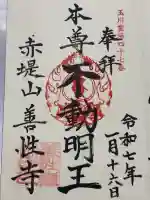 玉川霊場四十七番
奉拝
令和七年
一月十六日
本尊不動明王
赤堤山善性寺